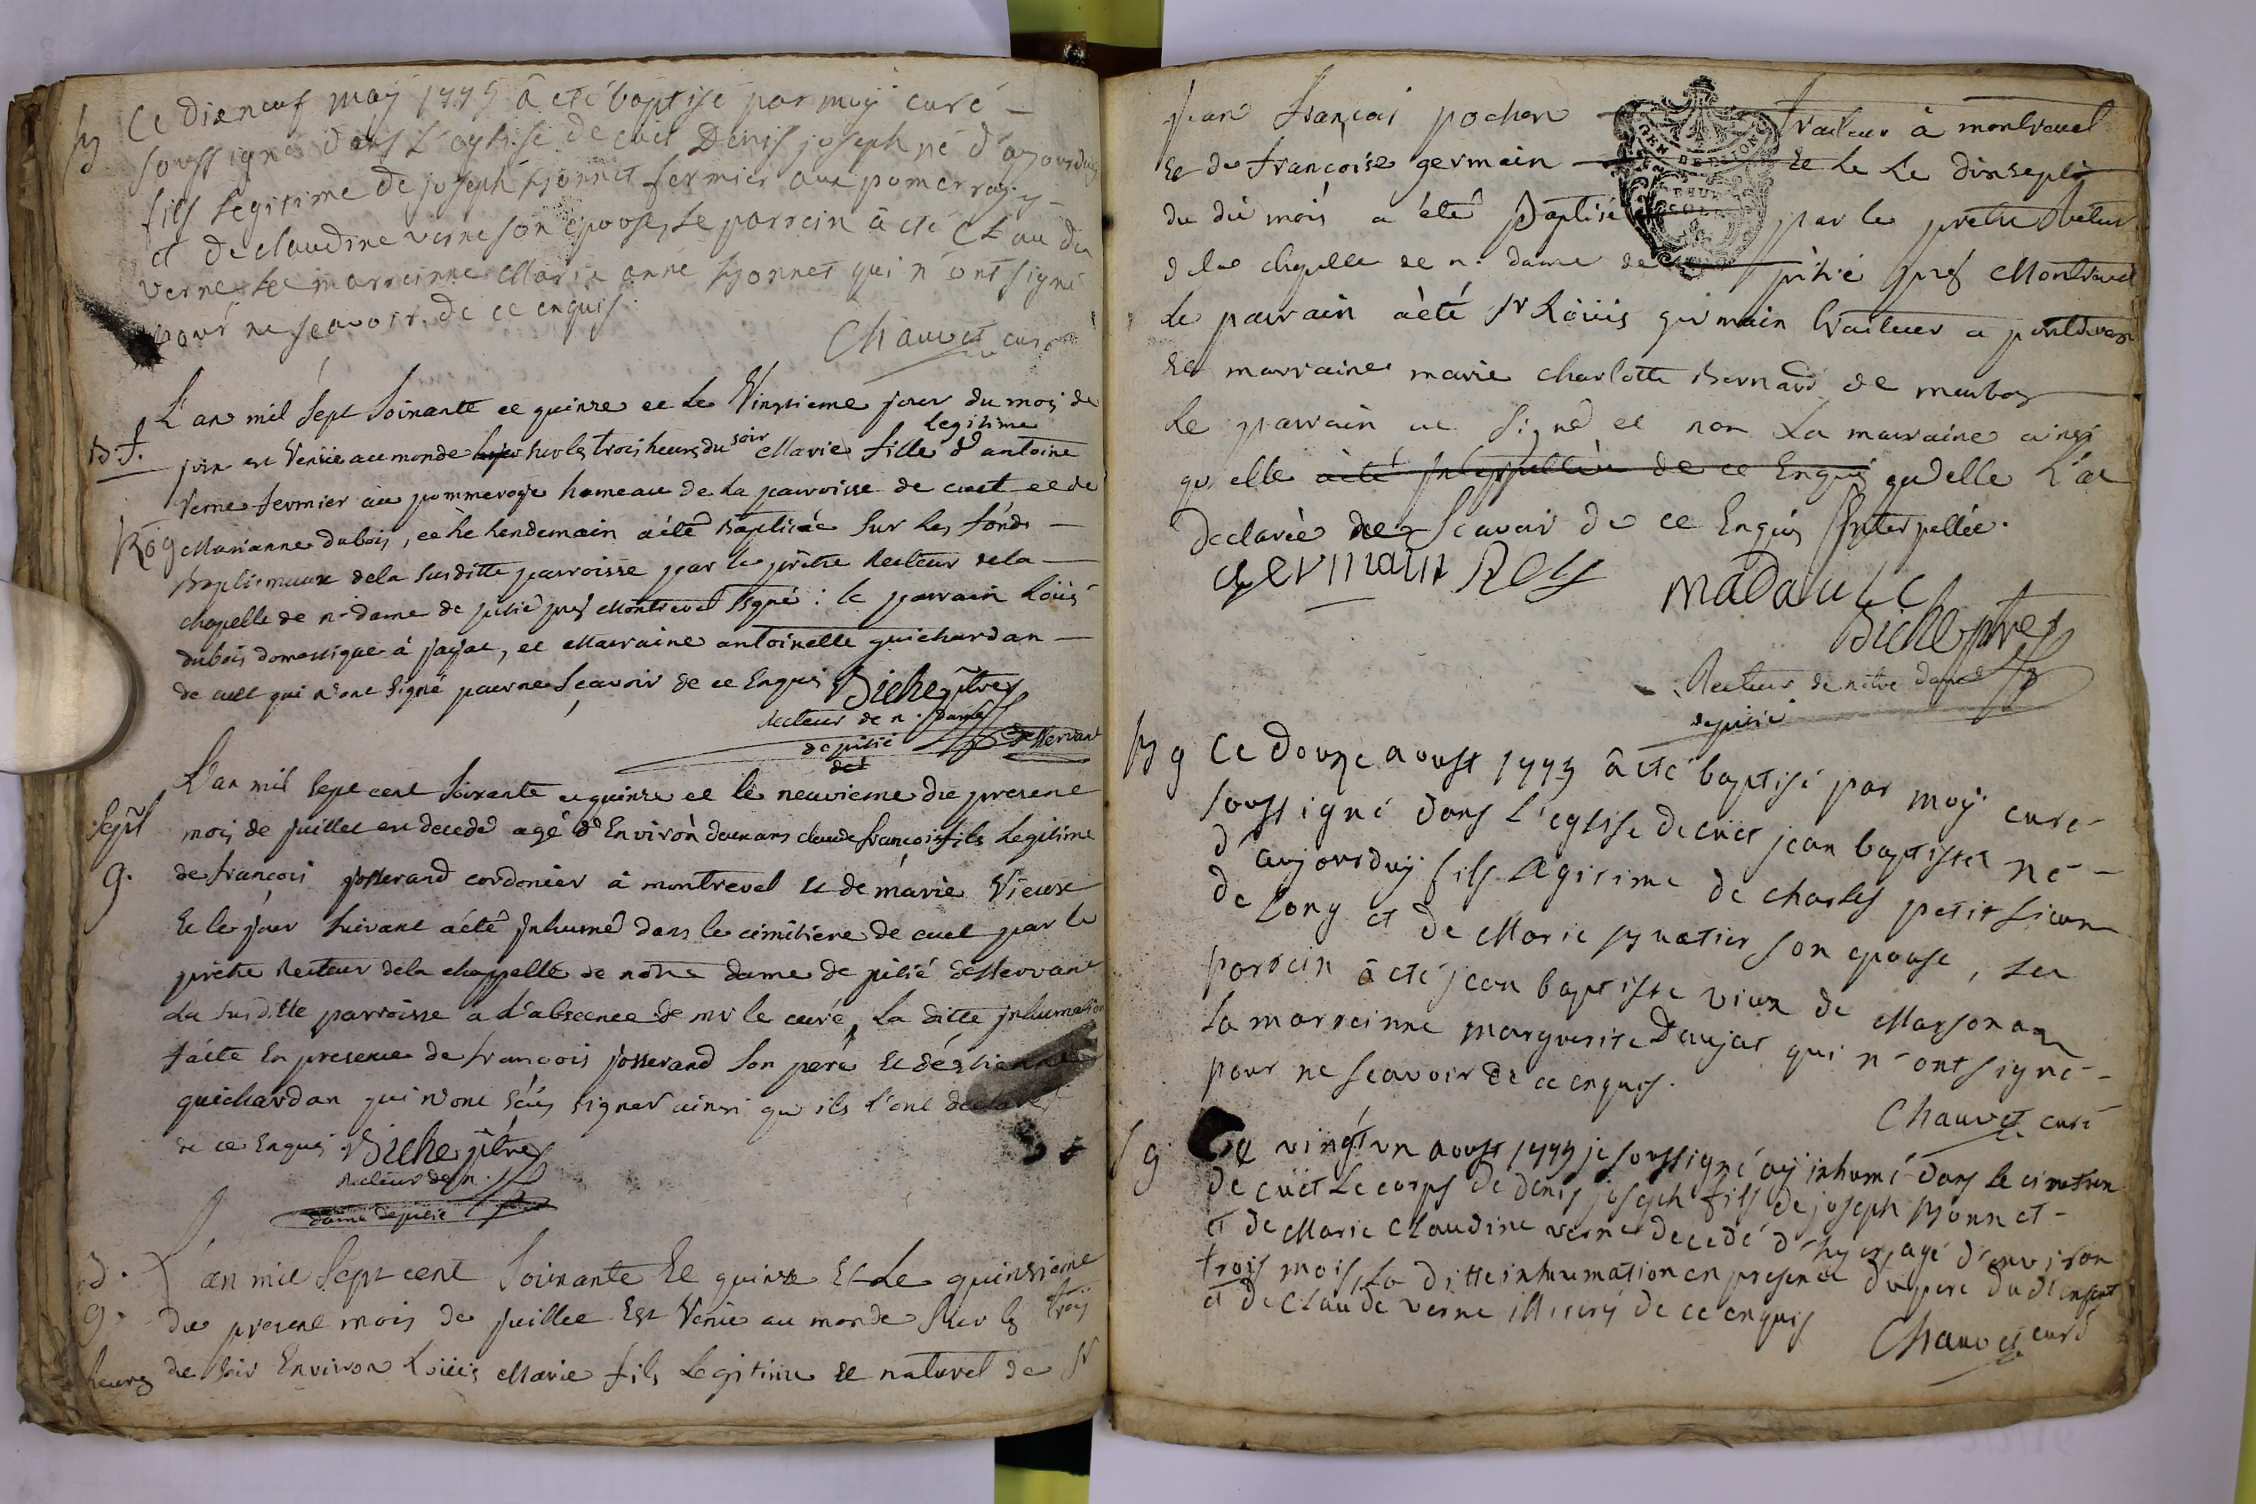 Bg Ce dixneuf may 1775 â eté baptisé par moy curé
soussigné dans l'eglise de cuet Denis joseph né d'ajourduy
fils legitime de joseph bjonnet fermier aux pomerray
et de claudine verne son epouse, le parrein â eté Claude
verne la marreinne Marie anne bjonnet qui n'ont signé
pour ne sçavoir de ce enquis
Chauvet curé
L'an mil sept soixante et quinze et le Vingtieme jour du mois de
B.f. juin est Venüe au monde sur les trois heures du soir Marie fille legitime d'antoine
Verne fermier au pommeroye hameau de la parroisse de cuet et de
Marianne dubois, et le lendemain a été Baptisée sur les fonds
Baptismaux de la susditte parroisse par le prêtre Recteur de la
chapelle de n. dame de pitié pres Montrevel signé : le parrain Loüis
dubois domestique à jayat, et Marraine antoinette guichardan
de cuet qui n'ont signé pour ne sçavoir de ce Enquis Biche ptre
Recteur de n. dame
de pitié desservant
L'an mil sept cent soixante et quinze et le neuvieme du present
Sept. mois de juillet est decedé agé d'Environ deux ans claude françois fils Legitime
g. de françois josserand cordonier à montrevel et de marie Vieux
Et le jour suivant a été Inhumé dans le cimitiere de cuet par le
prêtre Recteur de la chappelle de notre dame de pitié desservant
La susditte parroisse a L'absence de mr le curé, La ditte Inhumation
faitte En presence de françois josserand son pere et d'Estienne
guichardan qui n'ont sçüs signer ainsi qu'ils l'ont declaré
de ce Enquis Biche ptre
Recteur de n.
dame de pitié
B. L'an mil sept cent soixante Et quinze Et Le quinzieme
g. du present mois de juillet Est Venu au monde sur les trois
heures du soir Environ Loüis Marie fils Legitime et naturel de sr
jean françois pochon Traiteur à montrevel
et de françoise germain et le Le dixsept
du dit mois a été Baptisé par le prêtre Recteur
de la chapelle de n. dame de pitié pres Montrevel
Le parrain a été sr Loüis germain traiteur a pontdevaux
Et marraine marie charlotte Bernard de
Le parrain a signé et non La marraine ainsi
qu'elle a été Interpellée de ce Enquis qu'elle L'a
Declarée ne sçavoir de ce Enquis Interpellée.
germain
Biche ptre
Recteur de notre dame
de pitié
B g Ce douze aoust 1775 â eté baptisé par moy curé
soussigné dans l'eglise de cuet jean baptiste né
d'aujourduy fils legitime de charles petit
de Long et de Marie son epouse, le
parrein â eté jean baptiste vieux de Marsonas
la marreinne marguerite Daujat qui n'ont signé
pour ne sçavoir de ce enquis.
Chauvet curé
S g Ce vingt un aoust 1775 je soussigné ay inhumé dans le cimetiere
de cuet Le corps de denis joseph fils de joseph bjonnet
et de Marie Claudine verne decedé d'hyer, agé d'environ
trois mois, La ditte inhumation en presence du pere du dt enfant
et de Claude verne illiteré de ce enquis
Chauvet curé